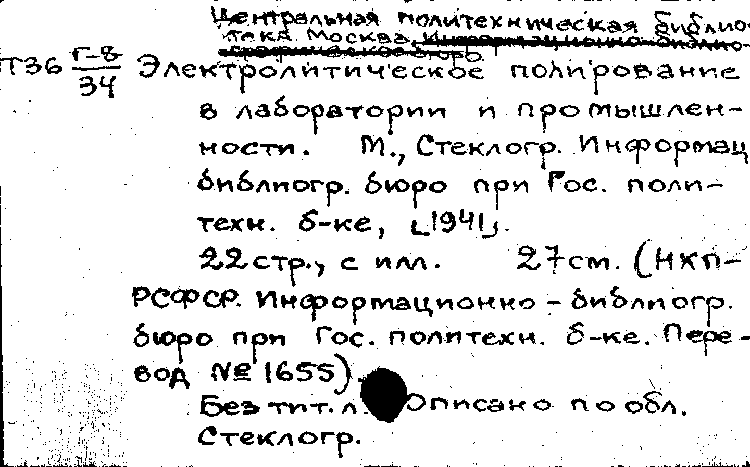 Центральная политехническая библио-
тека. Москва. Информационно-библио-
графическое бюро.
Т36 Г-8/34 Электролитическое полирование
в лаборатории и промышлен-
ности. М., Стеклогр. Информац
библиогр. бюро при Гос. поли-
техн. б-ке, [1941].
22 стр., с илл. 27 см. (НКП-
РСФСР. Информационно-библиогр.
бюро при Гос. политехн. б-ке. Пере-
вод № 1655).
Без тит. л. Описано по обл.
Стеклогр.